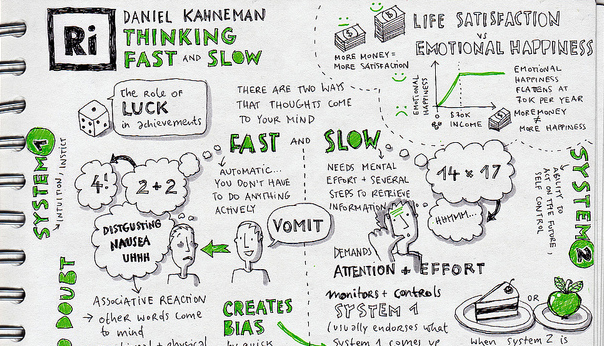 Ri
DANIEL KAHNEMAN
THINKING
FAST AND SLOW
LIFE SATISFACTION
vs
EMOTIONAL HAPPINESS
MORE MONEY =
MORE SATISFACTION
EMOTIONAL
HAPPINESS
$70K
INCOME
EMOTIONAL
HAPPINESS
FLATTENS AT
70K PER YEAR
MORE MONEY
MORE HAPPINESS
The role of
LUCK
in achievements
THERE ARE TWO WAYS
THAT THOUGHTS COME
TO YOUR MIND
FAST AND SLOW
SYSTEM 1
INTUITION, INSTICT
4!
2+2
AUTOMATIC...
YOU DON'T HAVE
TO DO ANYTHING
ACTIVELY
DISTGUSTING
NAUSEA
UHHH
VOMIT
NEEDS MENTAL
EFFORT + SEVERAL
STEPS TO RETRIEVE
INFORMATION
14 x 17
HHMMM...
SYSTEM 2
ABILITY TO
ACT ON THE FUTURE,
SELF CONTROL
DEMANDS
ATTENTION + EFFORT
DOUBT
ASSOCIATIVE REACTION
→ other words come
to mind
+ physical
CREATES
BIAS
by quick
monitors + controls
SYSTEM 1
(usually endorses what
system 1 comes up
OR
When system 2 is